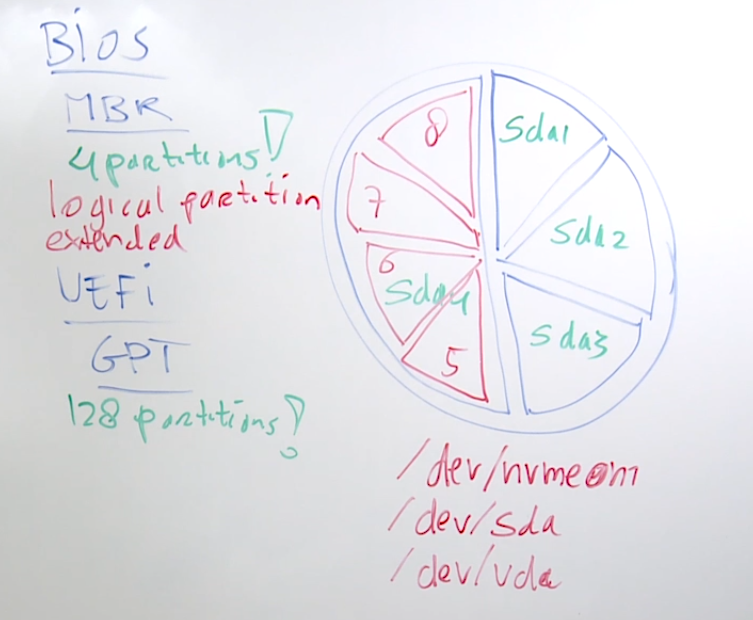 Bios
MBR
4 partitions!
logical partition
extended
UEFi
GPT
128 partitions!
8
Sda1
7
Sda2
6
Sda4
Sda3
5
/dev/nvme0n1
/dev/sda
/dev/vda